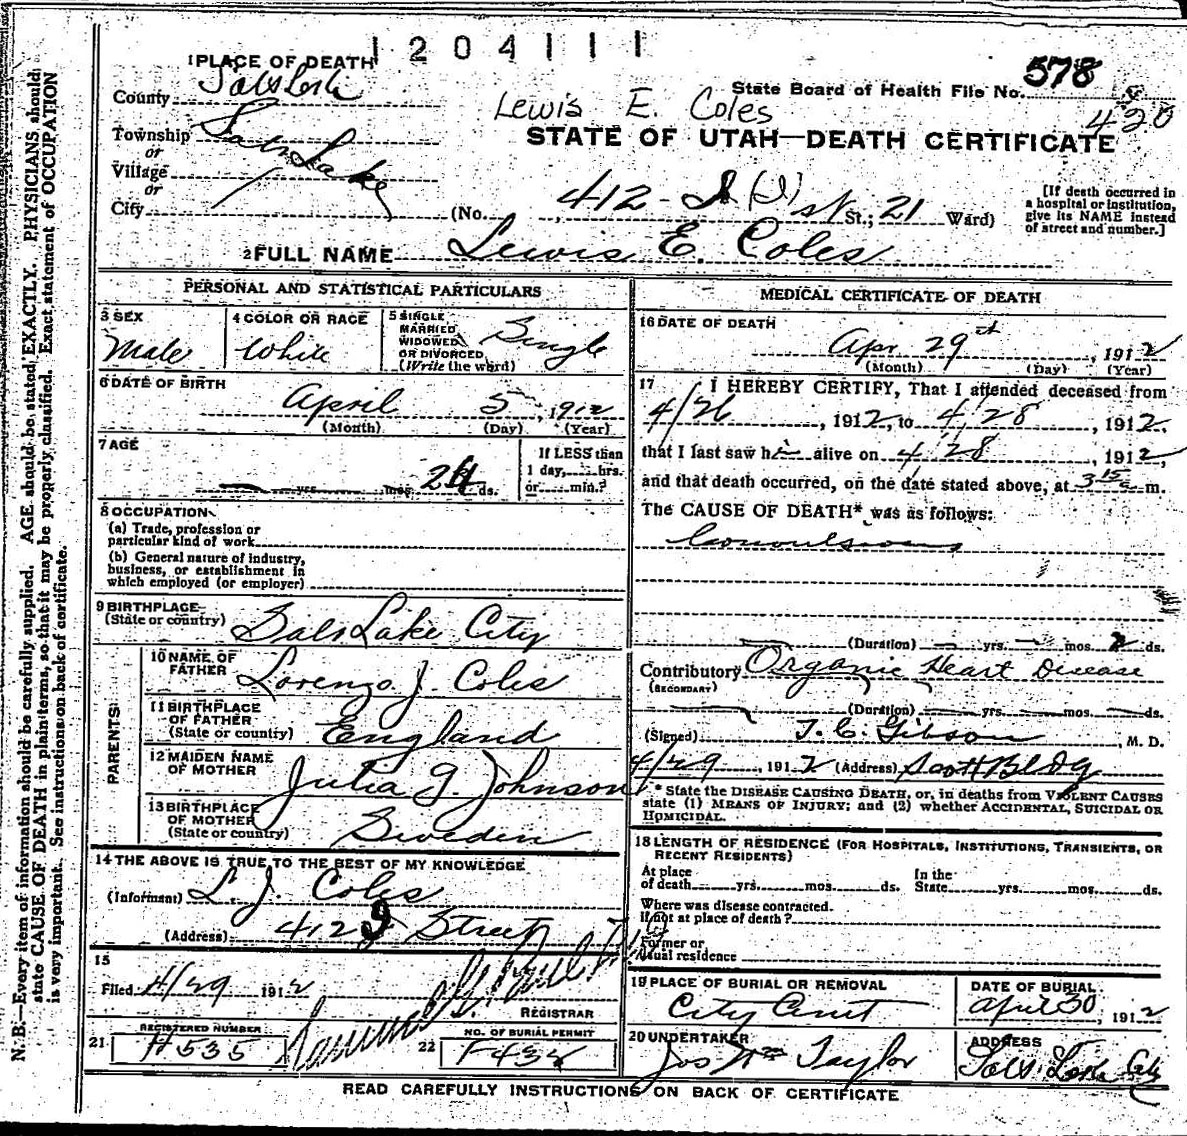 1204111
1 PLACE OF DEATH
County Salt Lake
Township Salt Lake
or
Village
or
City
State Board of Health File No. 578
420
Lewis E. Coles
STATE OF UTAH—DEATH CERTIFICATE
(No. 412 - (I) st St.; 21 Ward)
[If death occurred in a hospital or institution, give its NAME instead of street and number.]
2 FULL NAME Lewis E. Coles
PERSONAL AND STATISTICAL PARTICULARS
3 SEX
Male
4 COLOR OR RACE
White
5 SINGLE
MARRIED
WIDOWED
OR DIVORCED
(Write the word)
Single
6 DATE OF BIRTH
April 5, 1912
(Month) (Day) (Year)
7 AGE
yrs. mos. 24 ds.
If LESS than
1 day, hrs.
or min.?
8 OCCUPATION
(a) Trade, profession or
particular kind of work
(b) General nature of industry,
business, or establishment in
which employed (or employer)
9 BIRTHPLACE
(State or country) Salt Lake City
PARENTS
10 NAME OF
FATHER Lorenzo J Coles
11 BIRTHPLACE
OF FATHER
(State or country) England
12 MAIDEN NAME
OF MOTHER Julia G. Johnson
13 BIRTHPLACE
OF MOTHER
(State or country) Sweden
14 THE ABOVE IS TRUE TO THE BEST OF MY KNOWLEDGE
(Informant) L. J. Coles
(Address) 412 Street
15
Filed 4/29 1912
REGISTRAR
REGISTERED NUMBER
21 H535
NO. OF BURIAL PERMIT
22
MEDICAL CERTIFICATE OF DEATH
16 DATE OF DEATH
Apr 29th, 1912
(Month) (Day) (Year)
17 I HEREBY CERTIFY, That I attended deceased from
4/26, 1912, to 4, 28, 1912,
that I last saw h alive on 4 28, 1912,
and that death occurred, on the date stated above, at 3 15 a m.
The CAUSE OF DEATH* was as follows:
Convulsions
(Duration) yrs. mos. 2 ds.
Contributory Organic Heart Disease
(SECONDARY)
(Duration) yrs. mos. ds.
(Signed) T. C. Gibson, M. D.
4/29 1912 (Address) Scott Bldg
* State the DISEASE CAUSING DEATH, or, in deaths from VIOLENT CAUSES
state (1) MEANS OF INJURY; and (2) whether ACCIDENTAL, SUICIDAL OR
HOMICIDAL.
18 LENGTH OF RESIDENCE (FOR HOSPITALS, INSTITUTIONS, TRANSIENTS, OR
RECENT RESIDENTS)
At place
of death yrs. mos. ds.
In the
State yrs. mos. ds.
Where was disease contracted.
if not at place of death?
Former or
usual residence
19 PLACE OF BURIAL OR REMOVAL
City Cemt
DATE OF BURIAL
April 30, 1912
20 UNDERTAKER
Jos Wm Taylor
ADDRESS
Salt Lake City
READ CAREFULLY INSTRUCTIONS ON BACK OF CERTIFICATE
N. B.—Every item of information should be carefully supplied. AGE should be stated EXACTLY. PHYSICIANS should
state CAUSE OF DEATH in plain terms, so that it may be properly classified. Exact statement of OCCUPATION
is very important. See instructions on back of certificate.